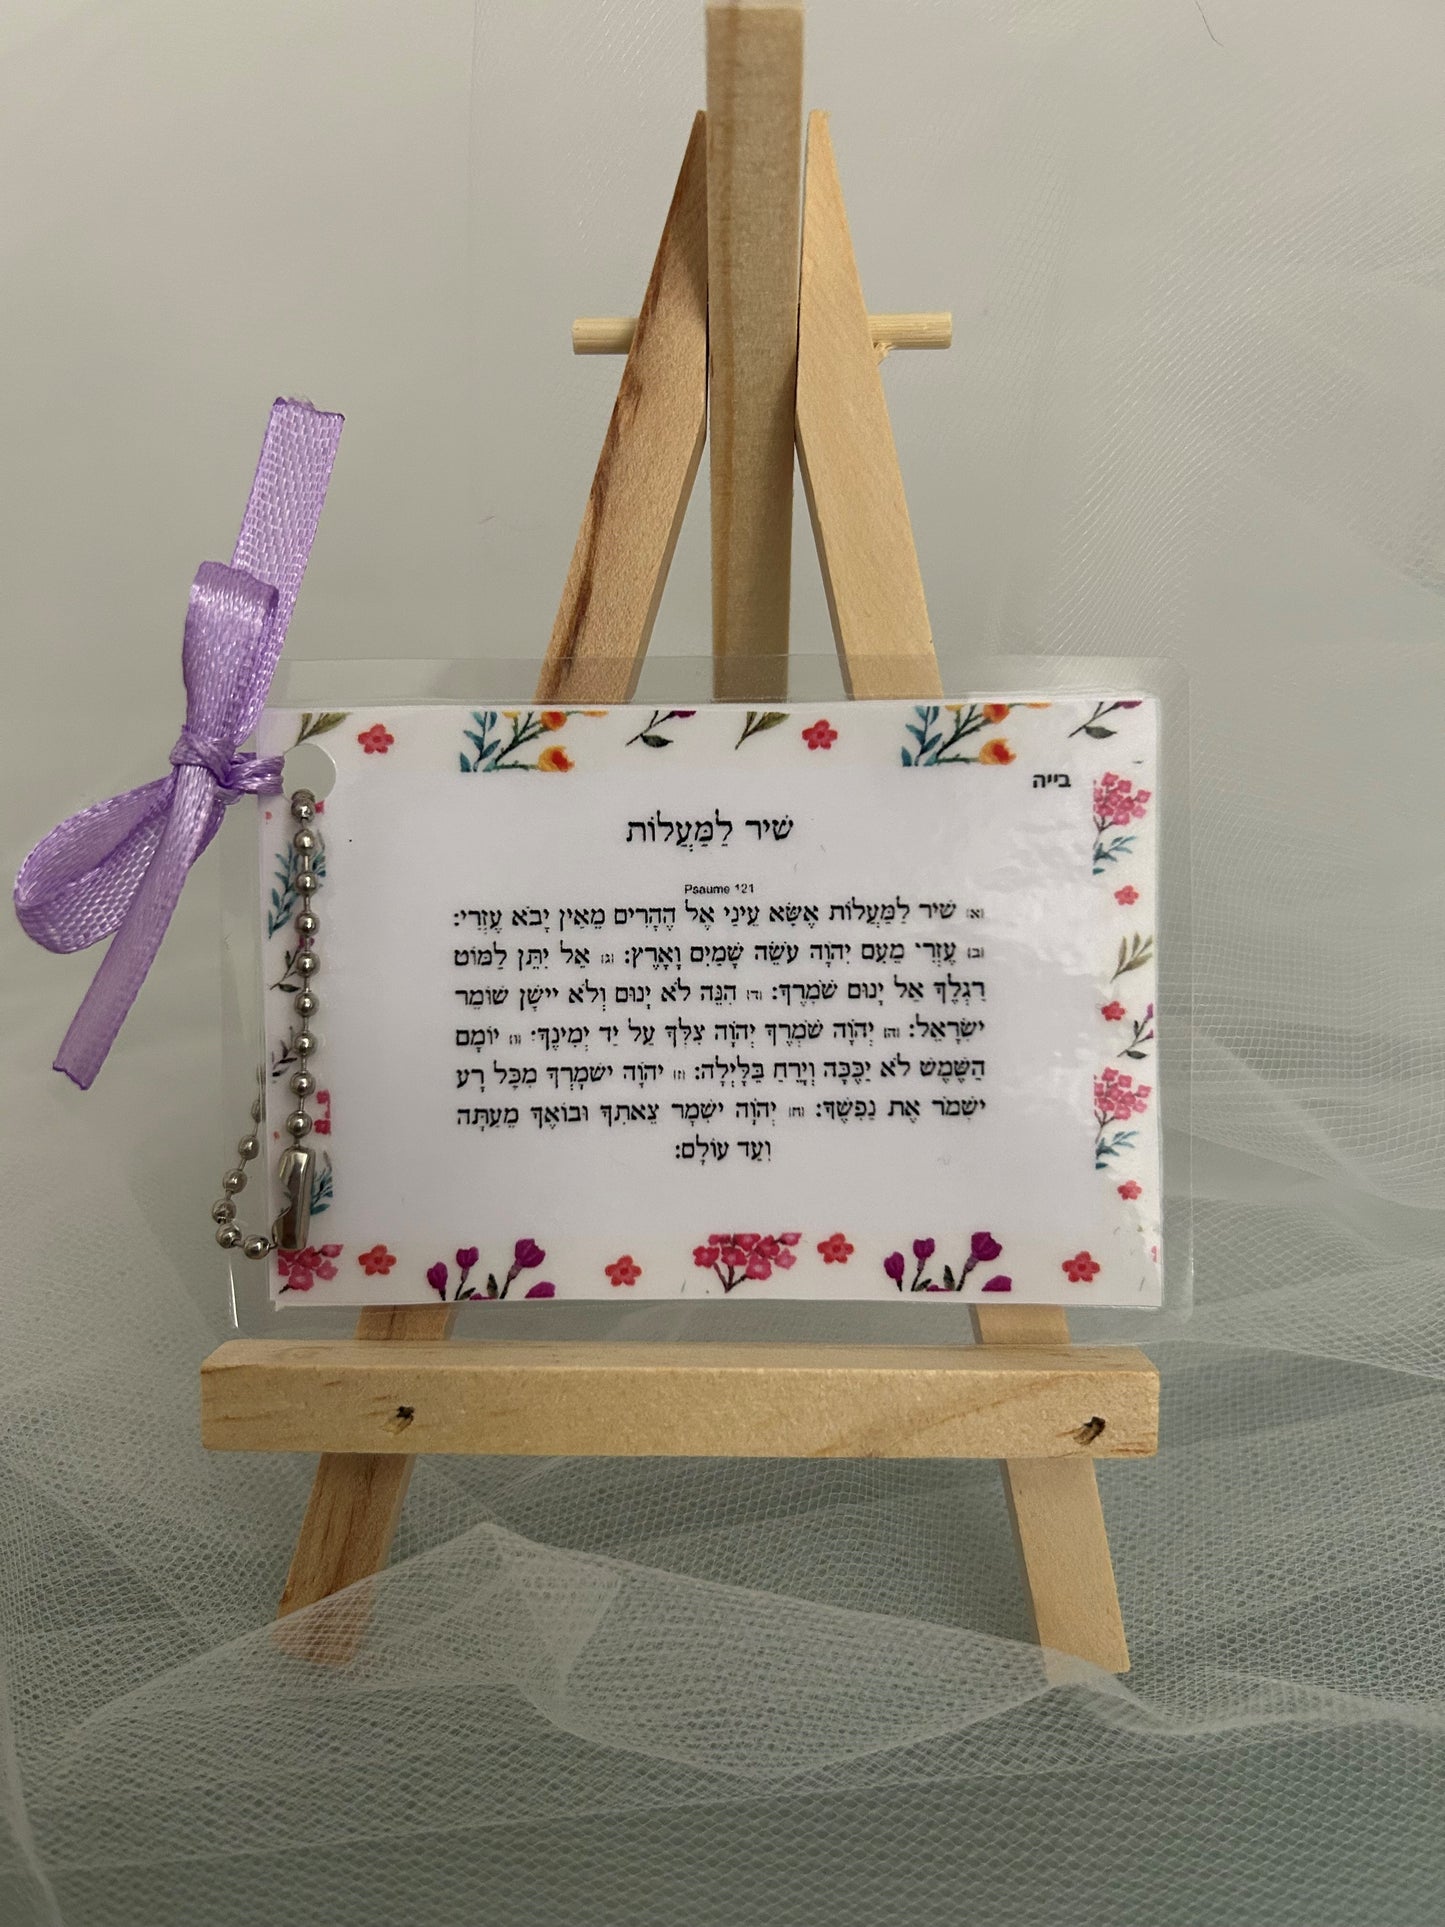 בייה
שִׁיר לַמַּעֲלוֹת
Psaume 121
(א) שִׁיר לַמַּעֲלוֹת אֶשָּׂא עֵינַי אֶל הֶהָרִים מֵאַיִן יָבֹא עֶזְרִי:
(ב) עֶזְרִי מֵעִם יְהֹוָה עֹשֵׂה שָׁמַיִם וָאָרֶץ: (ג) אַל יִתֵּן לַמּוֹט
רַגְלֶךָ אַל יָנוּם שֹׁמְרֶךָ: (ד) הִנֵּה לֹא יָנוּם וְלֹא יִישָׁן שׁוֹמֵר
יִשְׂרָאֵל: (ה) יְהֹוָה שֹׁמְרֶךָ יְהֹוָה צִלְּךָ עַל יַד יְמִינֶךָ: (ו) יוֹמָם
הַשֶּׁמֶשׁ לֹא יַכֶּכָּה וְיָרֵחַ בַּלָּיְלָה: (ז) יְהֹוָה יִשְׁמָרְךָ מִכָּל רָע
יִשְׁמֹר אֶת נַפְשֶׁךָ: (ח) יְהֹוָה יִשְׁמָר צֵאתְךָ וּבוֹאֶךָ מֵעַתָּה
וְעַד עוֹלָם: